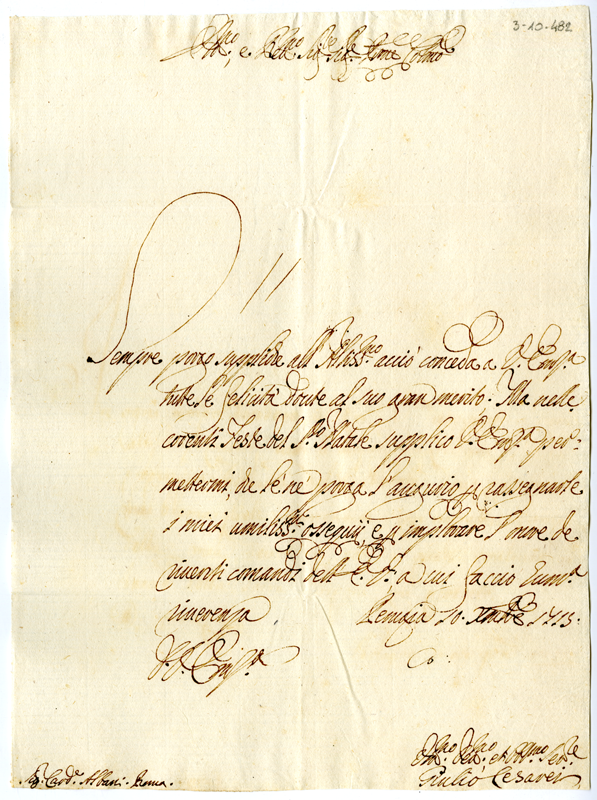 3-10-482
Em.mo, e R.mo Sig.r Sig.r P.rone Colmo
Sempre porgo suppliche all'Altiss.mo acciò conceda a V. Em.a
tutte le felicità dovute al suo gran merito: Ma nelle
correnti Feste del S.to Natale supplico V. Em.a per-
mettermi, che le ne porga l'augurio, p rassegnarle
i miei umiliss.mi ossequij, e p implorare l'onore de
riveriti comandi dell'E. V. a cui faccio Um.a
riverenza. Perugia 10. Xmbre 1713.
D. V. Em.a
Um.mo Dev.mo et Obl.mo Ser.re
Sig. Card. Albani. Roma. Giulio Cesarei